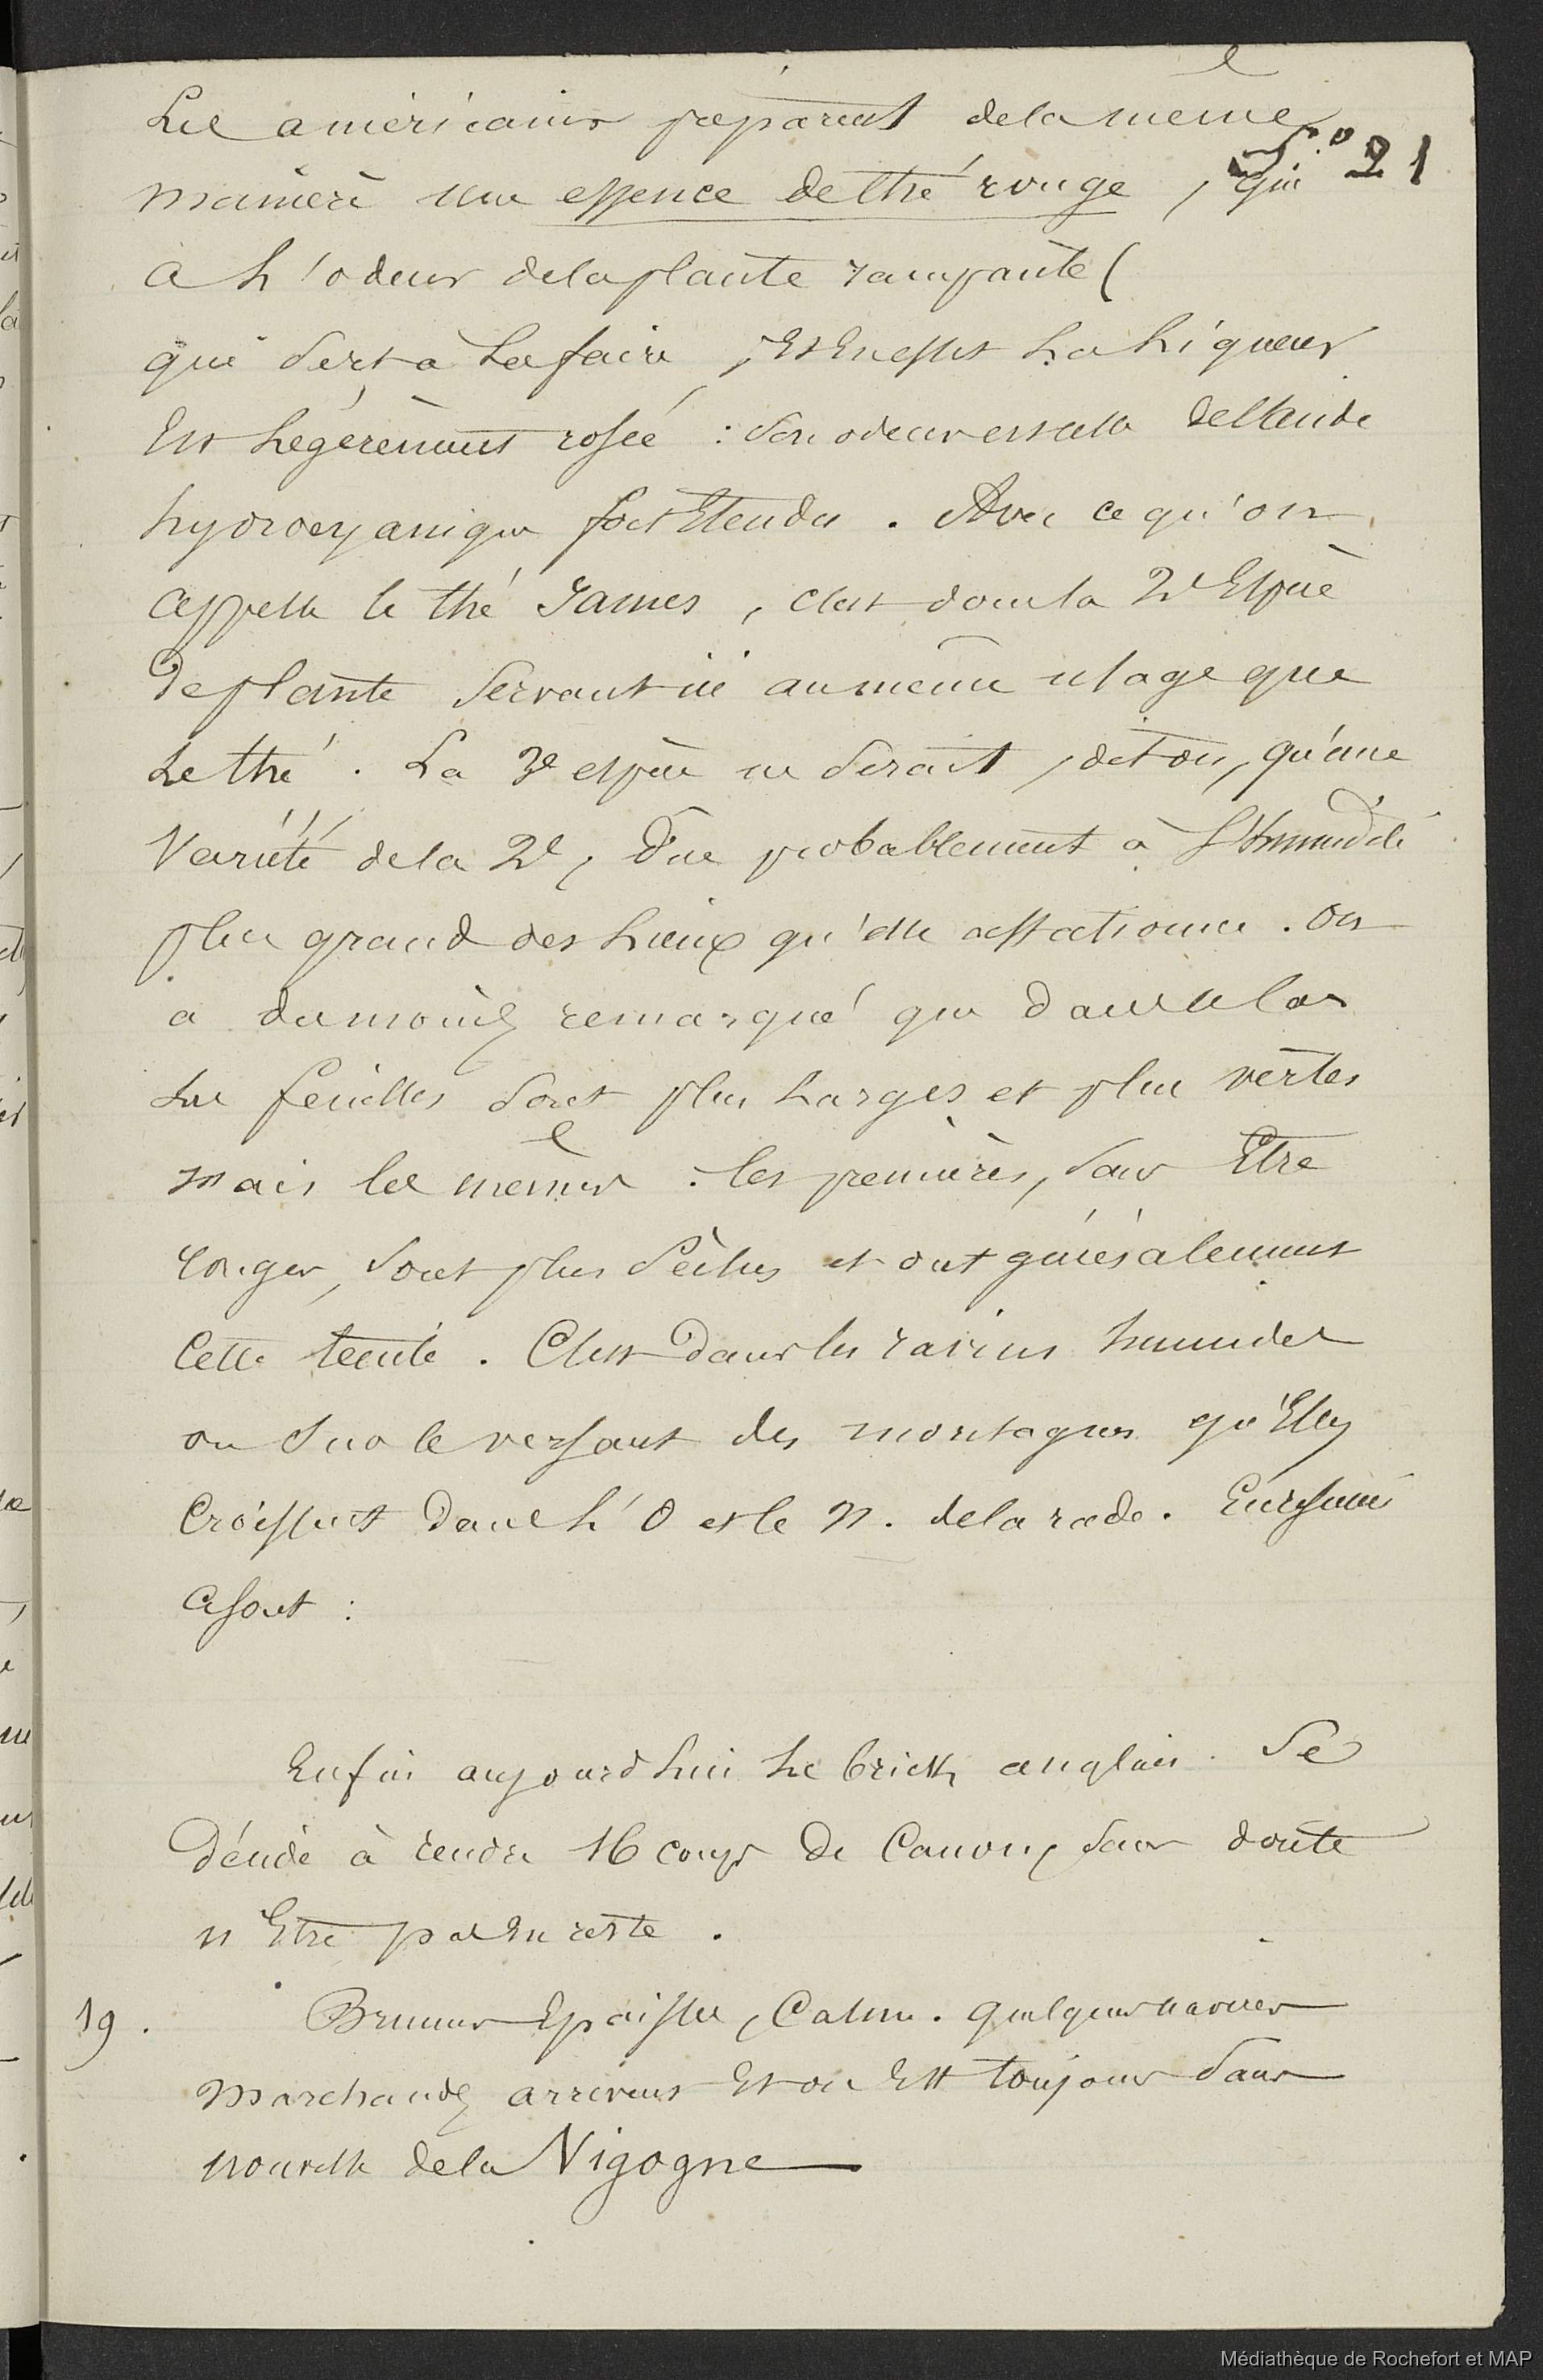 Les américains préparent de la même
F.° 21
manière une essence de thé rouge, qui
a l'odeur de la plante rampante (
qui sert à la faire, et en effet la liqueur
est légèrement rosée : son odeur est celle de l'acide
hydrocyanique fort étendu. Avec ce qu'on
appelle le thé James, c'est donc la 2e espèce
de plante servant ici au même usage que
le thé. La 3e espèce ne serait, dit on, qu'une
variété de la 2e, due probablement à l'humidité
plus grande des lieux qu'elle affectionne. On
a du moins remarqué que dans ce cas
les feuilles sont plus larges et plus vertes
mais les mêmes : les premières, sans être
rouges, sont plus sèches et ont généralement
cette teinte. C'est dans les ravins humides
ou sur le versant des montagnes qu'elles
croissent dans l'O et le N. de la rade. En résumé
ce sont :
Enfin aujourd'hui le brick anglais se
décide à rendre 16 coups de canon, sans doute
n'être pas en reste.
19. Brumes épaisses, Calme. quelques navires
marchands arrivent et on est toujours sans
nouvelle de la Vigogne
Médiathèque de Rochefort et MAP